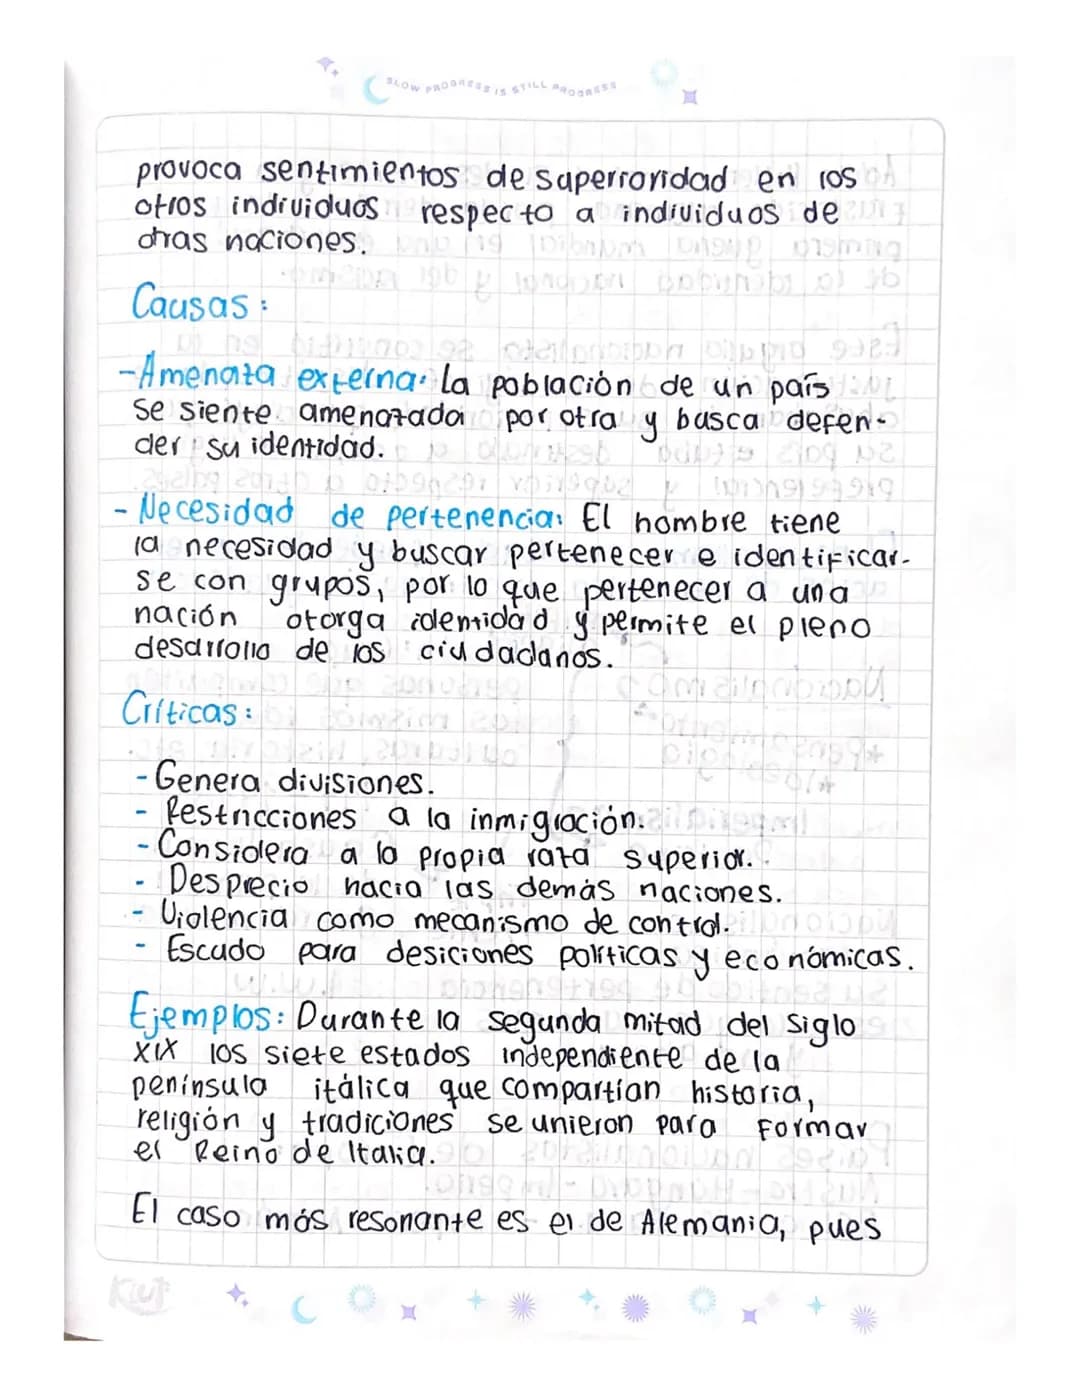 SLOW PROGRESS IS STILL PROGRESS
provoca sentimientos de superroridad en los
otros individuos respecto a individuos de
otras naciones.
Causas:
-Amenaza externa: La población de un país
se siente amenazada por otra y busca defen-
der su identidad.
- Necesidad de pertenencia: El hombre tiene
la necesidad y buscar pertenecer e identificar-
se con grupos, por lo que pertenecer a una
nación otorga identidad y permite el pleno
desarrollo de los ciudadanos.
Críticas:
- Genera divisiones.
- Restricciones a la inmigración.
- Considera a la propia raza superior.
- Desprecio hacia las demás naciones.
- Violencia como mecanismo de control.
- Escudo para desiciones políticas y económicas.
Ejemplos: Durante la segunda mitad del siglo
XIX los siete estados independiente de la
península itálica que compartían historia,
religión y tradiciones se unieron para formar
el Reino de Italia.
El caso más resonante es el de Alemania, pues